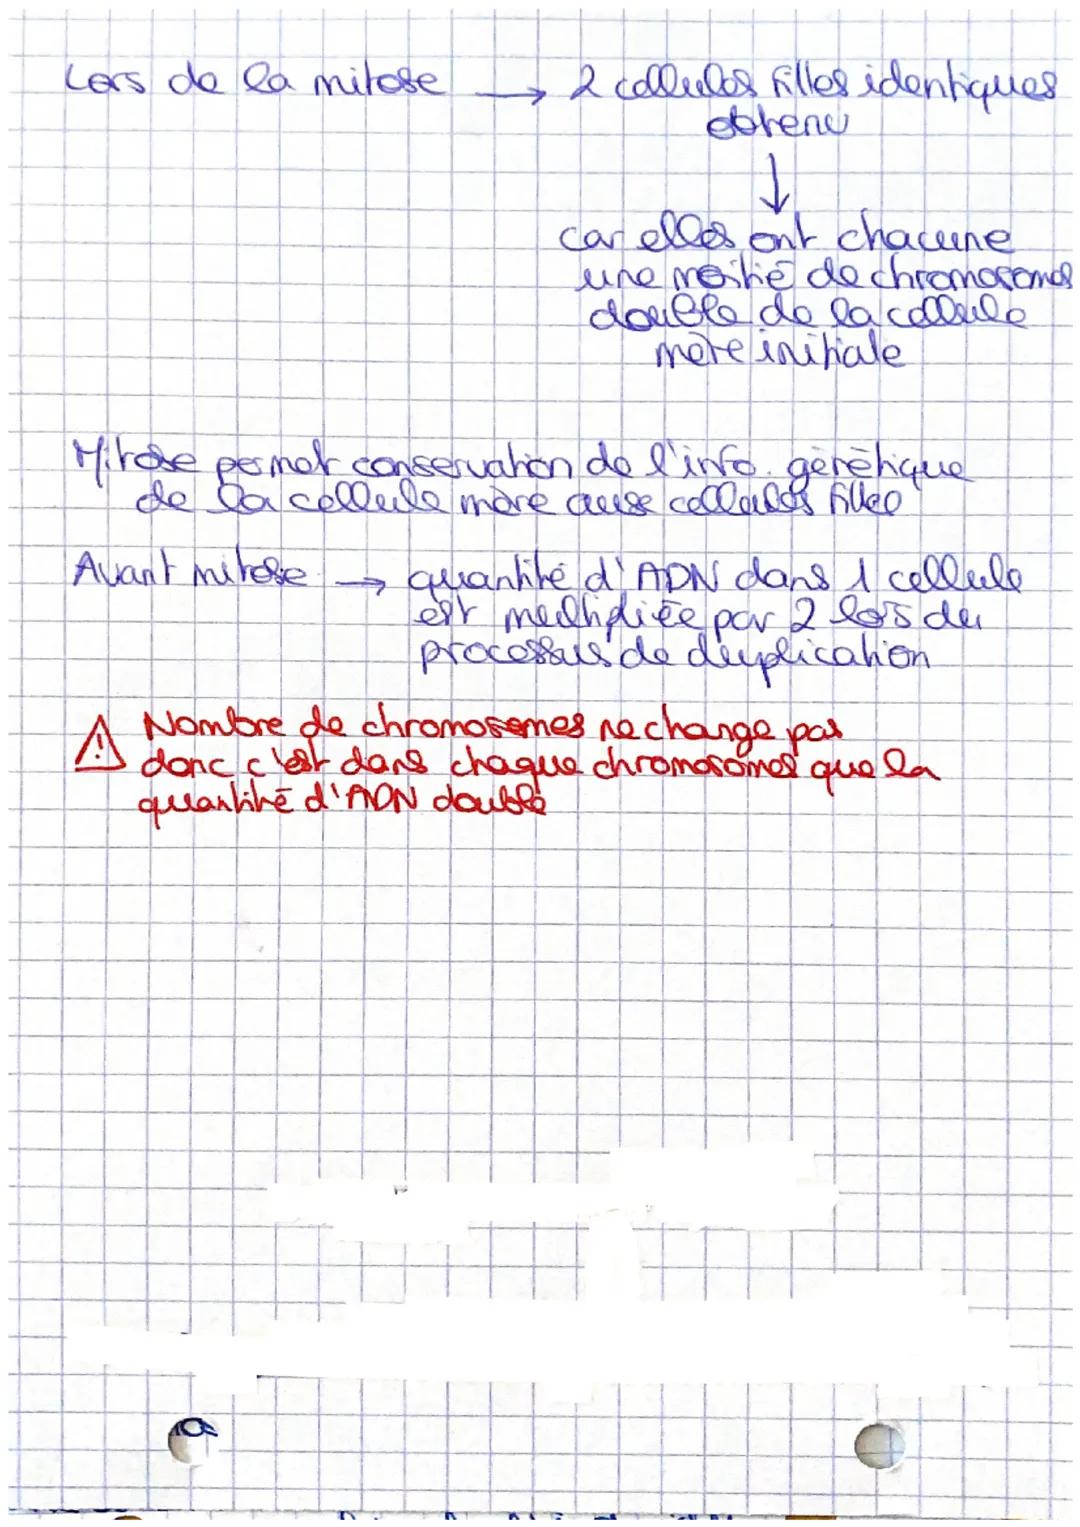 Lors de la mitose → 2 cellules filles identiques
obtenu
↓
car elles ont chacune
une moitié de chromosomes
double de la cellule
mère initiale
Mitose permet conservation de l'info. génétique
de la cellule mère aux cellules filles
Avant mitose → quantité d'ADN dans 1 cellule
est multipliée par 2 lors du
processus de duplication
⚠ Nombre de chromosomes ne change pas
donc c'est dans chaque chromosomes que la
quantité d'ADN double